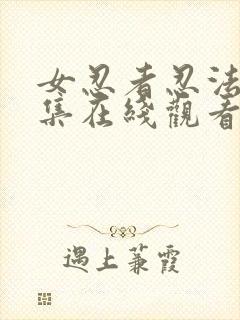 女忍者忍法
集在綫觀看
遇上蒹霞